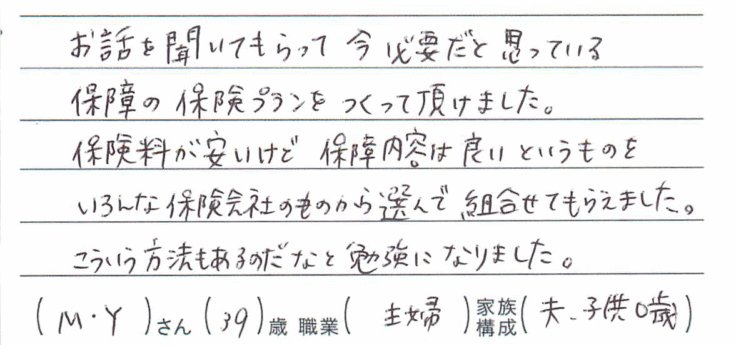 お話を聞いてもらって 今 必要だと思っている
保障の保険プランをつくって頂けました。
保険料が安いけど 保障内容は良いというものを
いろんな保険会社のものから選んで組合せてもらえました。
こういう方法もあるのだなと勉強になりました。
(M・Y)さん(39)歳 職業(主婦)家族構成(夫、子供0歳)